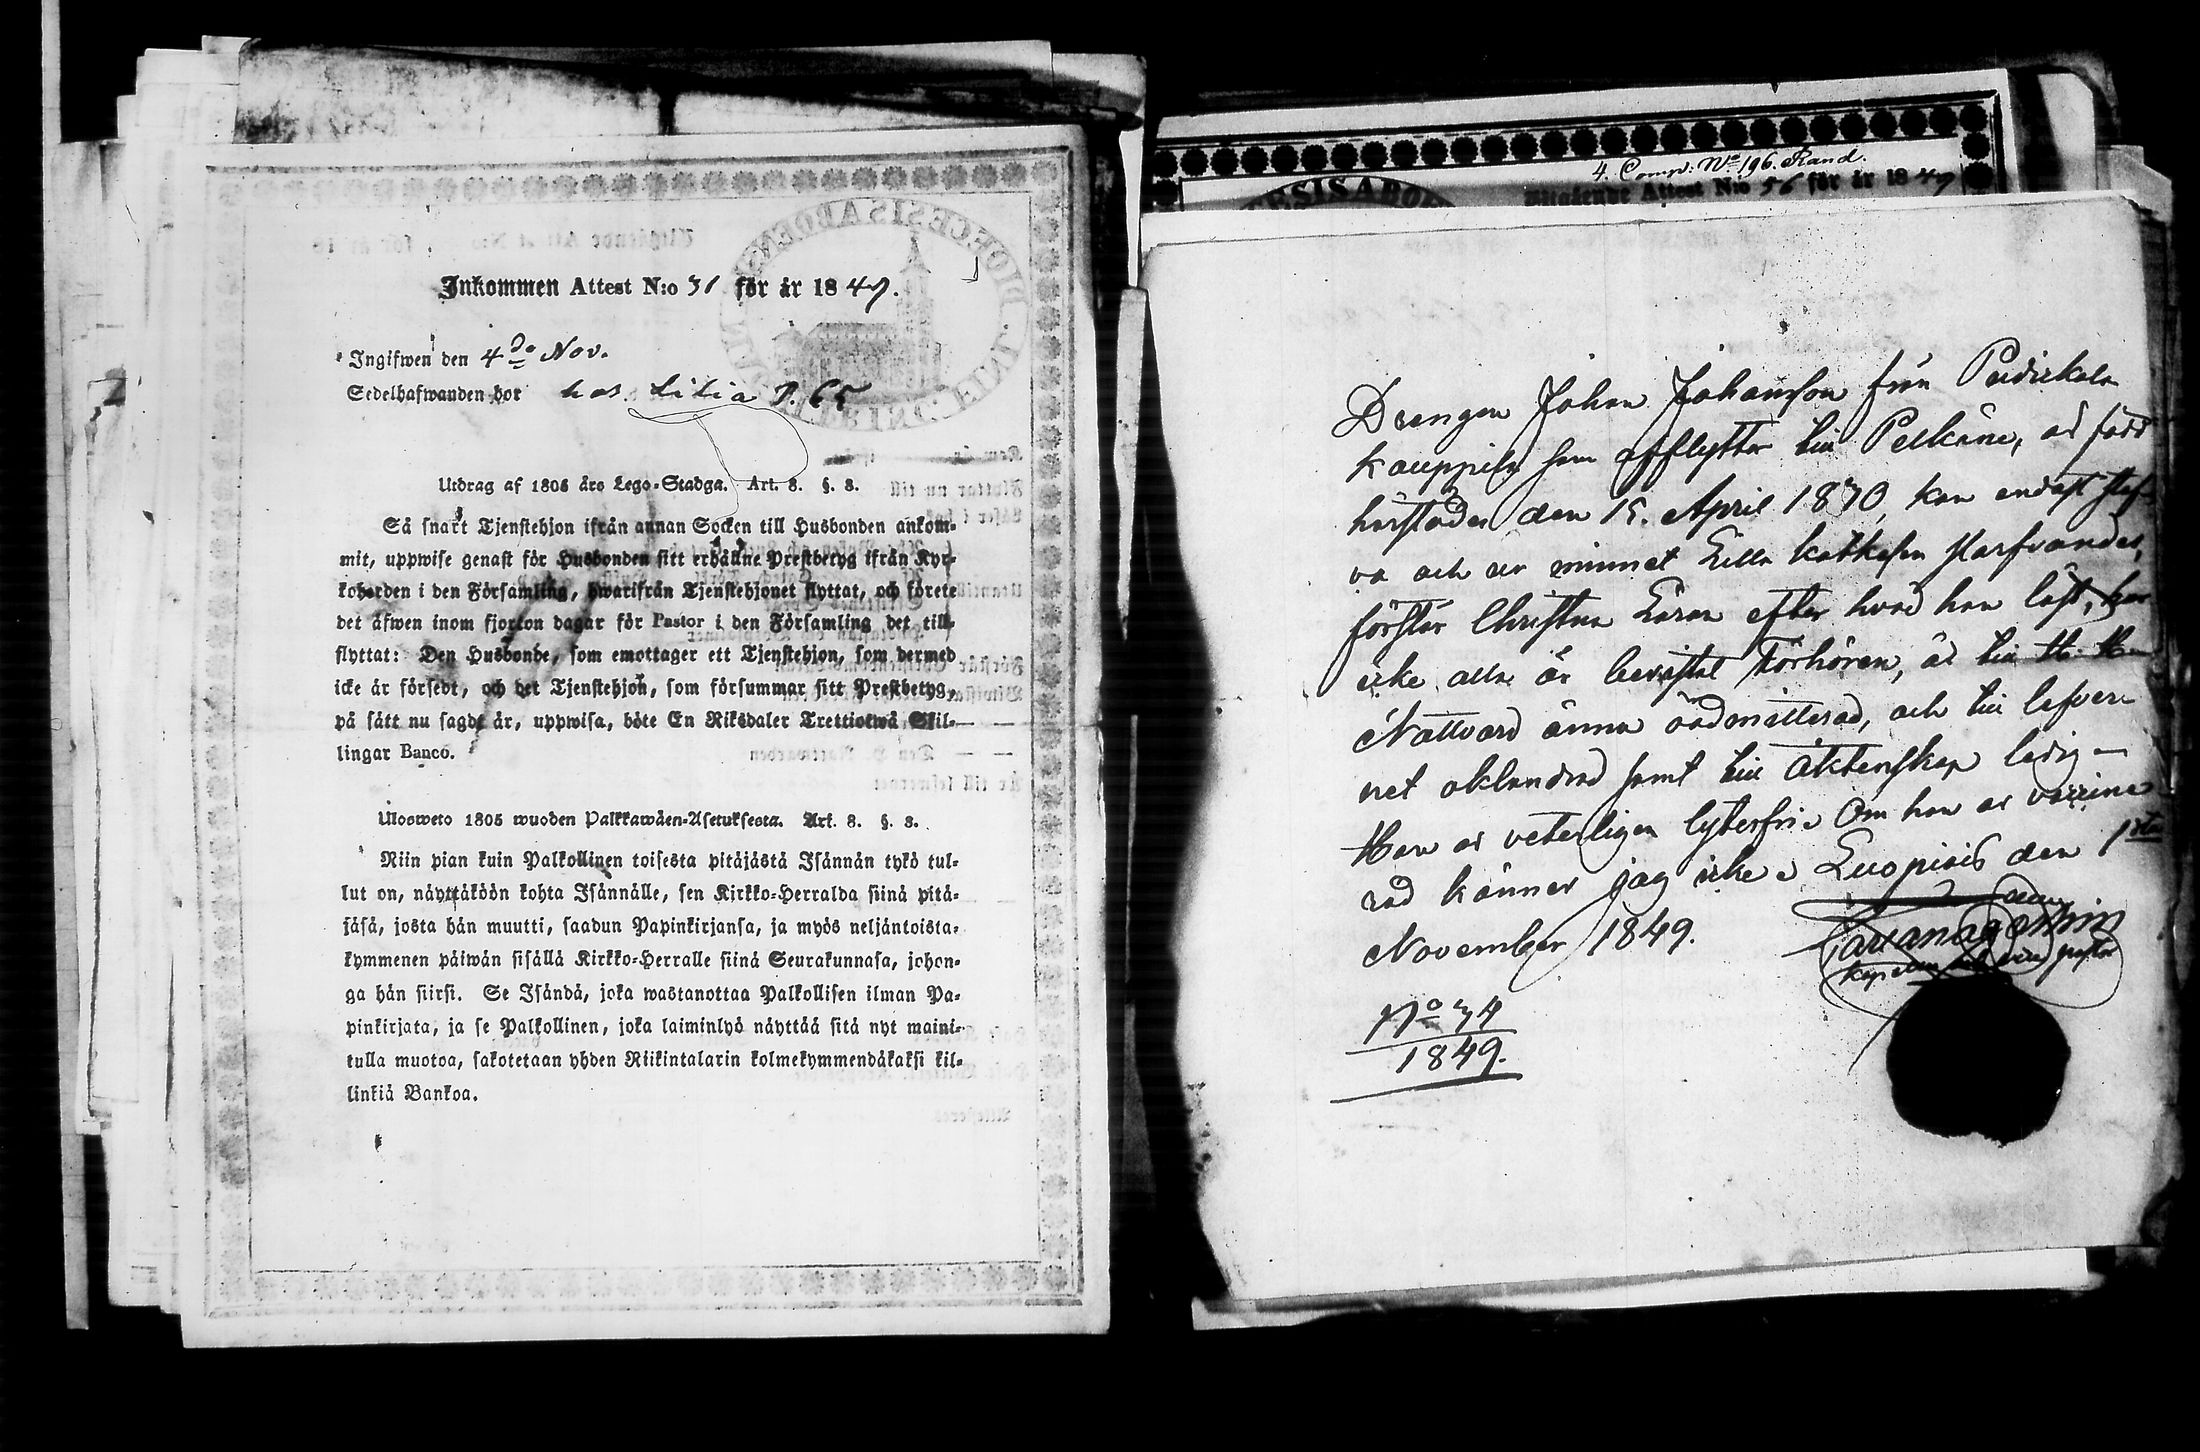 Inkommen Attest N:o 31 för år 1849.
Ingifwen den 4de Nov.
Sedelhafwanden bor hos Lilia P. 65
Utdrag af 1805 års Lego-Stadga. Art. 8. §. 8.
Så snart Tjenstehjon ifrån annan Socken till Husbonden ankom-
mit, uppwise genast för Husbonden sitt erhållne Prestbetyg ifrån Kyr-
koherden i den Församling, hwarifrån Tjenstehjonet flyttat, och förete
det äfwen inom fjorton dagar för Pastor i den Församling det till-
flyttat: Den Husbonde, som emottager ett Tjenstehjon, som dermed
icke är försedt, och det Tjenstehjon, som försummar sitt Prestbetyg,
på sätt nu sagdt är, uppwisa, böte En Riksdaler Trettiotwå Skil-
lingar Banco.
Ulosweto 1805 wuoden Palkkawäen-Asetuksesta. Art. 8. §. 8.
Niin pian kuin Palkollinen toisesta pitäjästä Isännän tykö tul-
lut on, näyttäköön kohta Isännälle, sen Kirkko-Herralda siinä pitä-
jäsä, josta hän muutti, saadun Papinkirjansa, ja myös neljäntoista-
kymmenen päiwän sisällä Kirkko-Herralle siinä Seurakunnasa, johon-
ga hän siirsi. Se Isändä, joka wastanottaa Palkollisen ilman Pa-
pinkirjata, ja se Palkollinen, joka laiminlyö näyttää sitä nyt maini-
tulla muotoa, sakotetaan yhden Riikintalarin kolmekymmendäkaksi kil-
linkiä Bankoa.
4. Comp: No 196. Rand.
Utgående Attest N:o 56 för år 1849
Drengen Johan Johansson från Puduckala
Kauppila som afflyttar till Pelkäne, är född
härstädes den 15. April 1830, kan endast staf-
va och ur minnet Lilla kathesen
förstår Christna Läran efter hvad han läst, har
icke alla år bevistat Förhören, är till H. H.
Nattvard ännu oadmitterad, och till lefver-
net oklandrad samt till äktenskap ledig –
Han är veterligen lyterfri. Om han är vaccine-
rad känner jag icke. Luopiois den 1sta
November 1849.
No 34
1849.